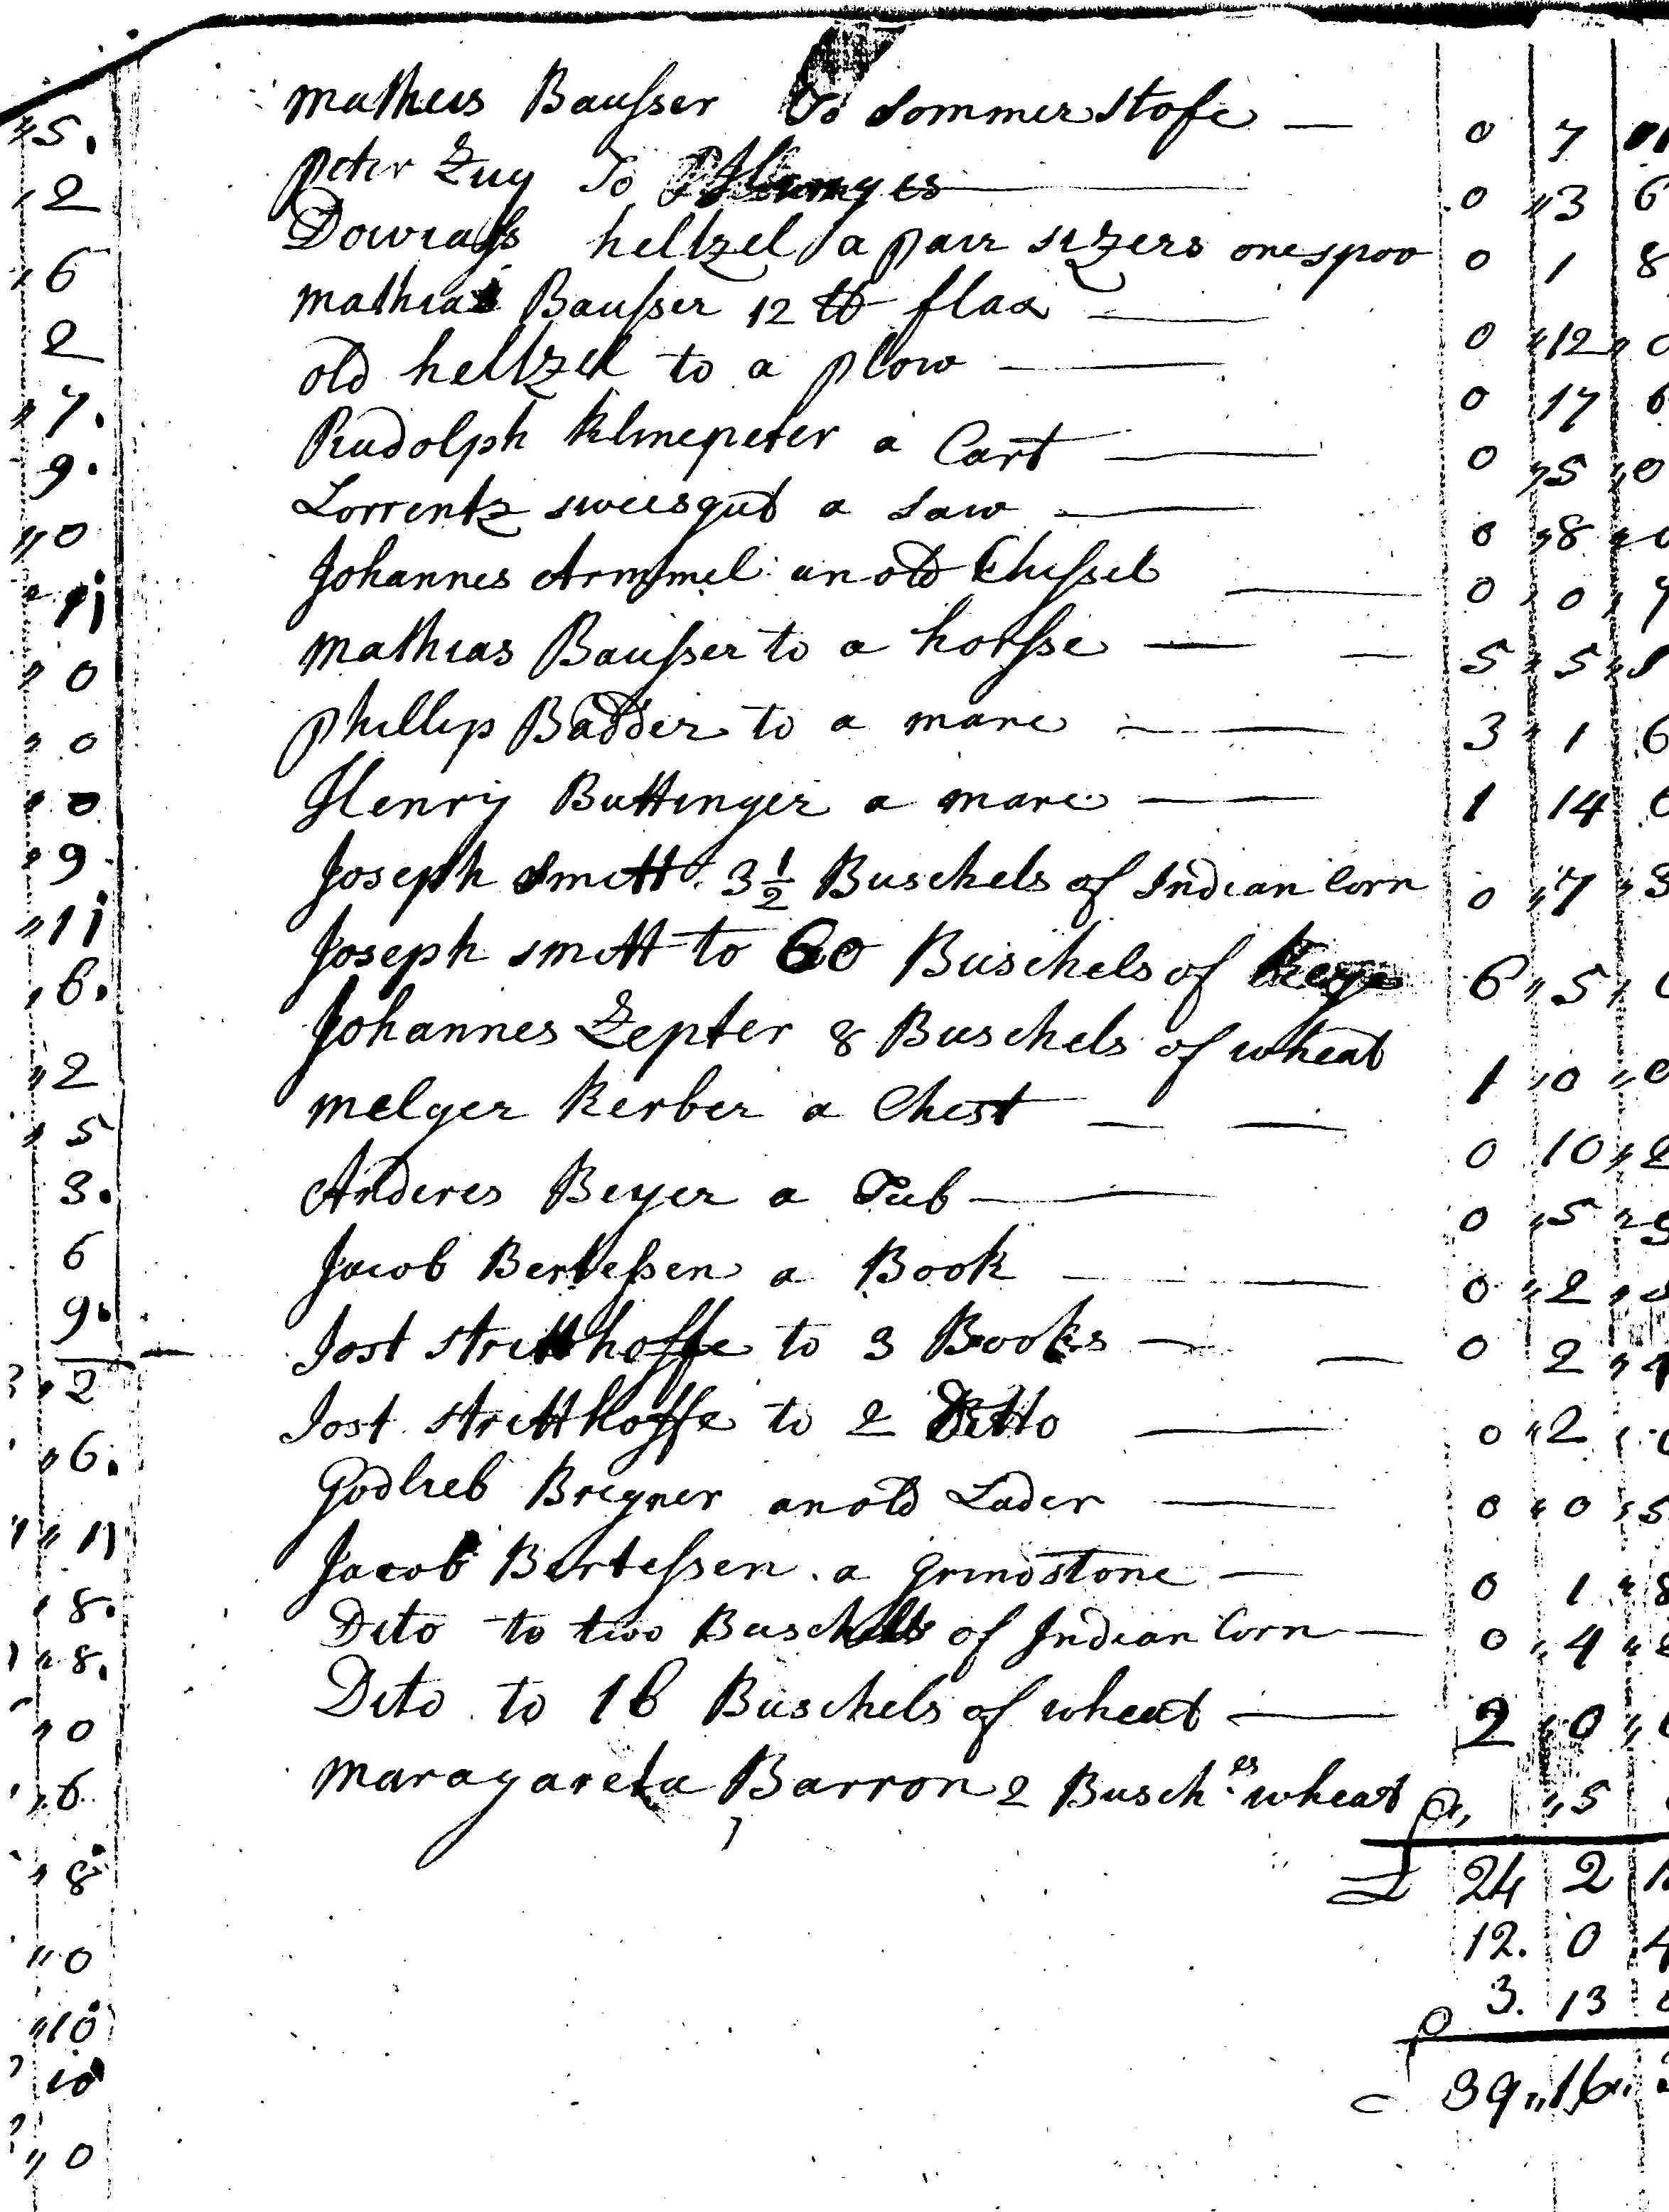 5.
2
6
2
7.
9.
0
11
0
0
0
9
11
6.
2
5
3.
6
9.
2
6.
11
8.
8.
0
6
8
0
10
10
0
Matheis Bausser To Sommer stofe — 0 7
Peter Zug To 0 „3 6
helTzel a pair sizers one spoo 0 1 8
Mathias Bausser 12 lb flax — 0 „12„ 0
old helTzel to a plow — 0 17 6
Rudolph Klinepeter a Cart — 0 „5 „0
Lorrentz sweisgut a saw — 0 „8 „0
Johannes Armmel an old Chissel — 0 „ 0 „ 7
Mathias Bausser to a horsse — 5 „ 5 „
Phillip Badder to a mare — 3 „ 1 6
Henry Buttinger a mare — 1 14
Joseph Smitt 3 1/2 Buschels of Indian Corn 0 „7 „
Joseph smitt to 60 Buschels of 6 „ 5 „
Johannes Zepter 8 Buschels of wheat 1 „0 „0
Melger Kerber a Chest — 0 10 „2
Anderes Beyer a Tub — 0 „5 „
Jacob Bertessen a Book — 0 „2 „
Jost stritthoffe to 3 Books — 0 2 „4
Jost stritthoffe to 2 Ditto — 0 „2
Godlieb Breyner an old Lader — 0 „ 0 „5
Jacob Bertessen a grindstone — 0 1 „8
Dito to two Buschels of Indian Corn — 0 „4 „
Dito to 16 Buschels of wheat — 2 „0 „
Maragareta Barron 2 Busch.es wheat „5
24 2
12. 0 4
3. 13
39„16„